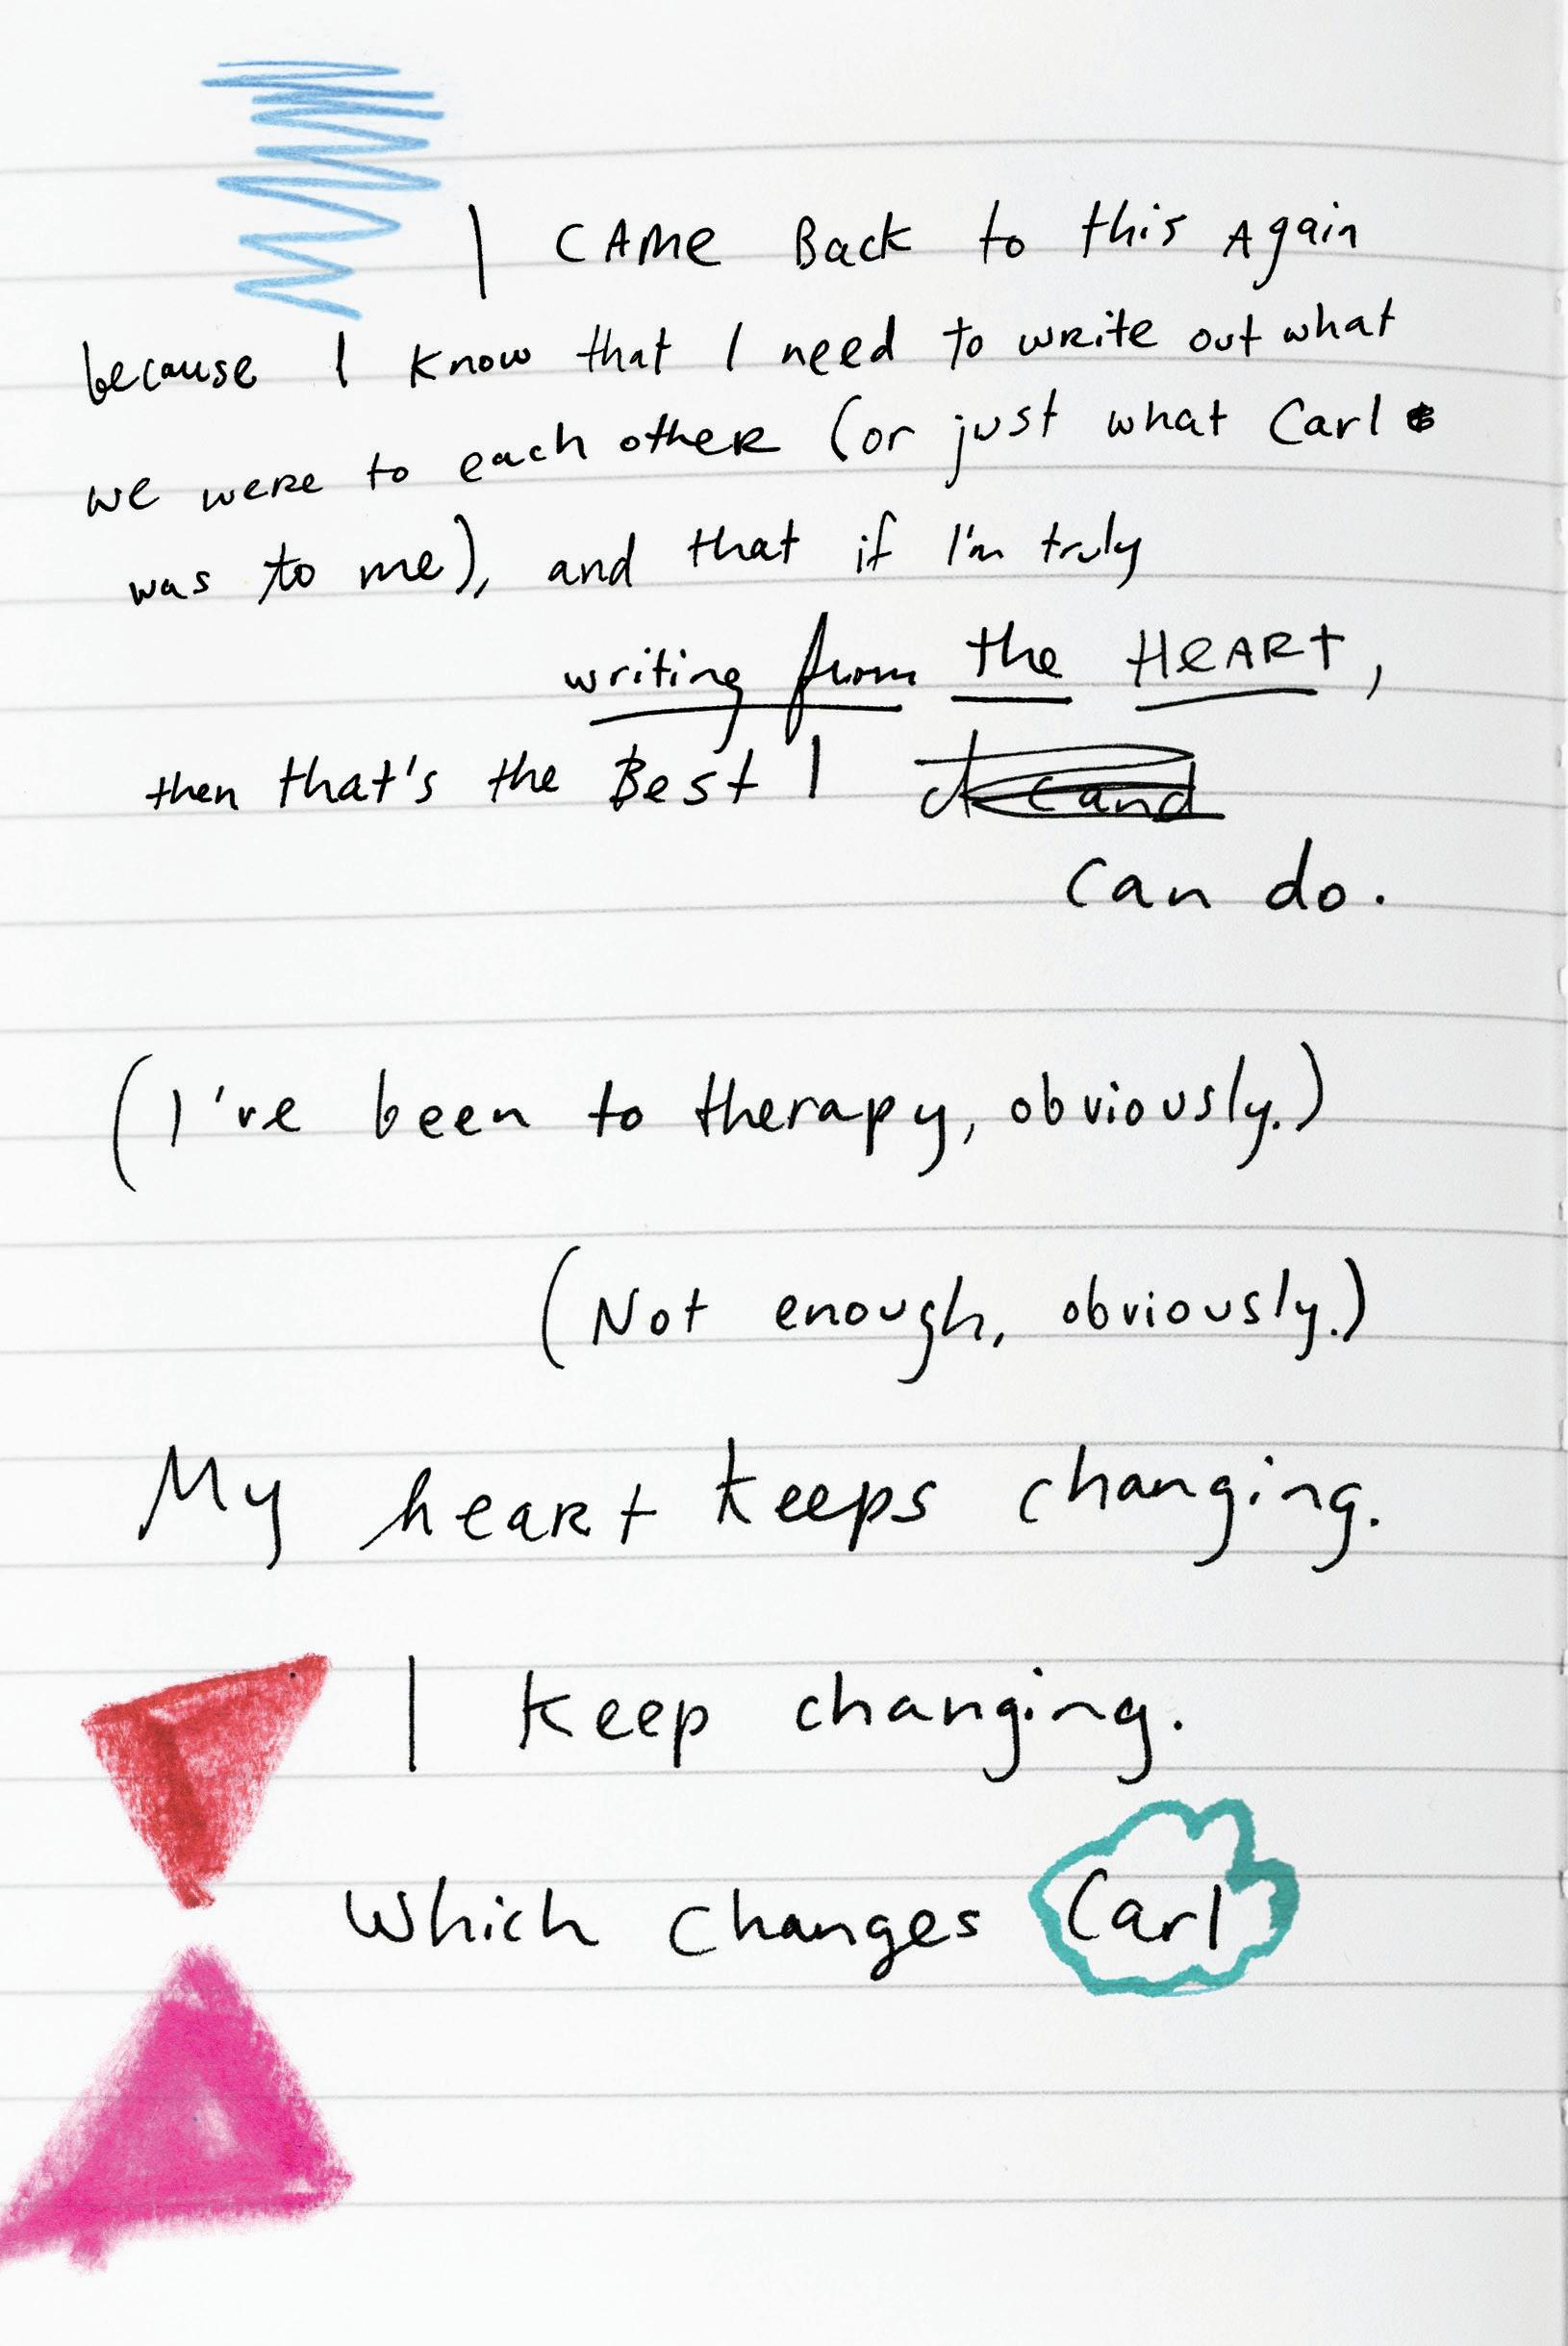 I CAMe Back to this Again
because I know that I need to write out what
we were to each other (or just what Carl
was to me), and that if I'm truly
writing from the HeART,
then that's the Best I
can do.
(I've been to therapy, obviously.)
(Not enough, obviously.)
My heart keeps changing.
I keep changing.
Which changes Carl